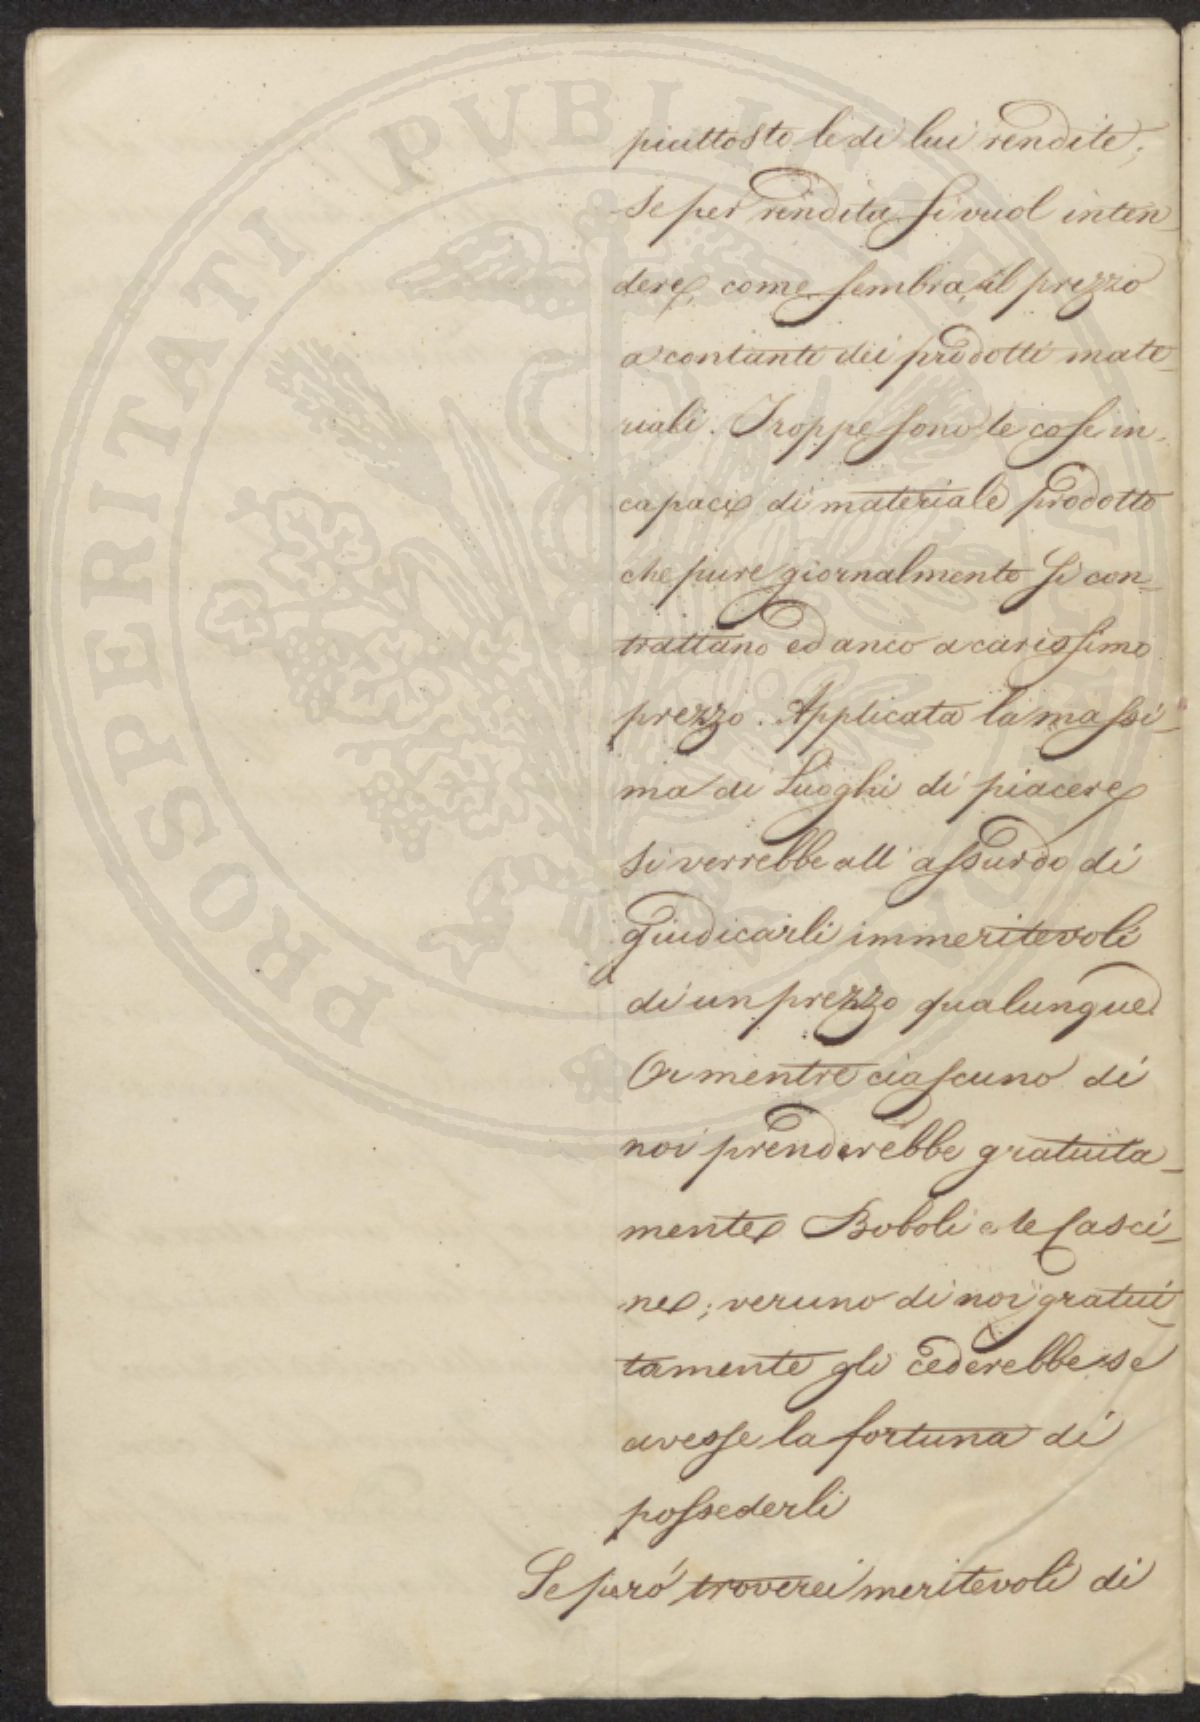 piuttosto le di lui rendite;
se per rendita si vuol inten
dere, come sembra, il prezzo
a contanti dei prodotti mate
riali. Troppe sono le cose in
capaci di materiale prodotto
che pure giornalmente si con
trattano ed anco a carissimo
prezzo. Applicata la massi
ma ai Luoghi di piacere
si verrebbe all'assurdo di
giudicarli immeritevoli
di un prezzo qualunque
Or mentre ciascuno di
noi prenderebbe gratuita
mente Boboli e le Casci
ne; veruno di noi gratui
tamente gli cederebbe se
avesse la fortuna di
possederli
Se però troverei meritevoli di
PROSPERITATI PUBLICAE AUGENDAE